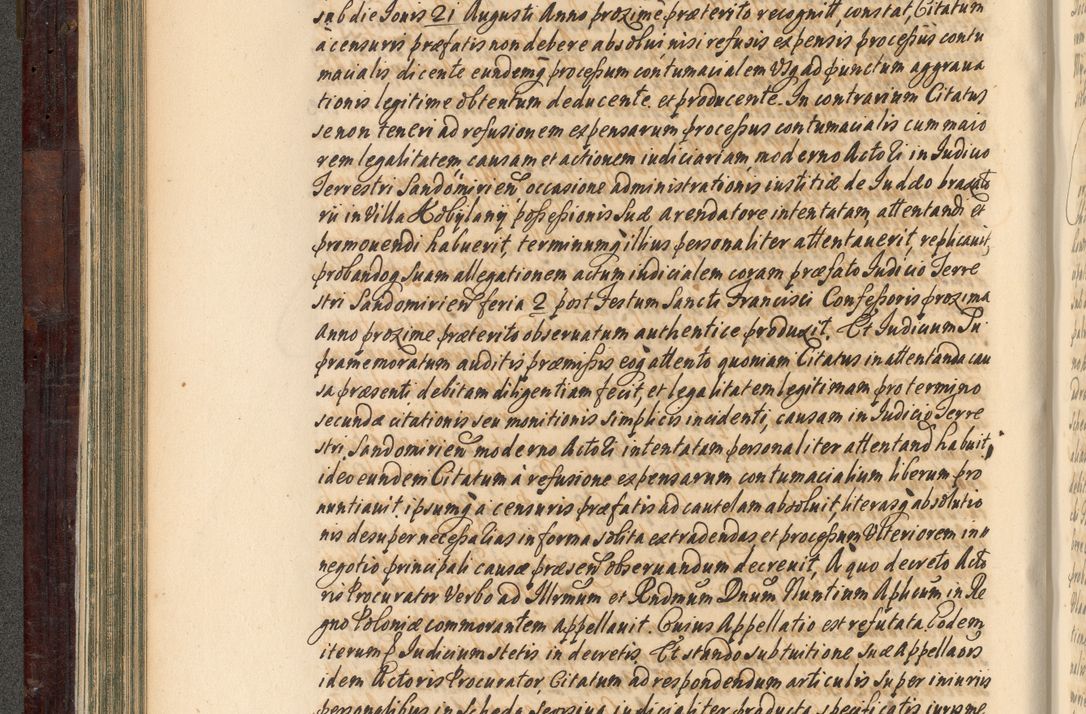 sub die Jovis 21 Augusti Anno proxime præterito recognitt, constat, Citatum
à censuris præfatis non debere absolui nisi refusis expensis processus contu
macialis dicente eundemq processum contumacialem Vsq ad punctum aggraua
tionis legitime obtentum deducente et producente. In contrarium Citatus
se non teneri ad refusionem expensarum processus contumacialis cum maio
rem legalitatem causam et actionem iudiciariam moderno Actori in Judicio
Terrestri Sandomirien occasione administrationis iustitiæ de Iudæo braxato
rii in Villa Kobylany possessionis Suæ arendatore intentatam, attentandi et
promouendi habuerit, terminumq illius personaliter attentauerit, replicauit,
probandoq Suam allegationem actum iudicialem coram præfato Judicio Terre
stri Sandomirien feria 2 post Festum Sancti Francisci Confessoris proxima
Anno proxime præterito obseruatum authentice produxit. Et Iudicium Su
pramemoratum auditis præmissis eoq attento quoniam Citatus in attentanda cau
sa præsenti debitam diligentiam fecit, et legalitatem legitimam pro termino
secundæ citationis seu monitionis simplicis incidenti, causam in Judicio Terre
stri Sandomirien moderno Actori intentatam personaliter attentand habuit,
ideo eundem Citatum à refusione expensarum contumacialium liberum pro
nuntiauit, ipsumq à censuris præfatis ad cautelam absoluit, literasq absolutio
nis desuper necessarias in forma solita extradendas et processum Vlteriorem in
negotio principali causæ præsen obseruandum decreuit, A quo decreto Acto
ris Procurator Verbo ad Illrmum et Rndmum Dnum Nuntium Aplicum in Re
gno Poloniæ commorantem Appellauit. Cuius Appellatio est refutata. Eodem
iterum p Iudicium stetis in decretis. Et stando sub tuitione suæ Appellaõis
idem Actoris Procurator, Citatum ad respondendum articulis super iniuriis
personalibus in scheda seorsiua iudicialiter producta specificatis iuxpme